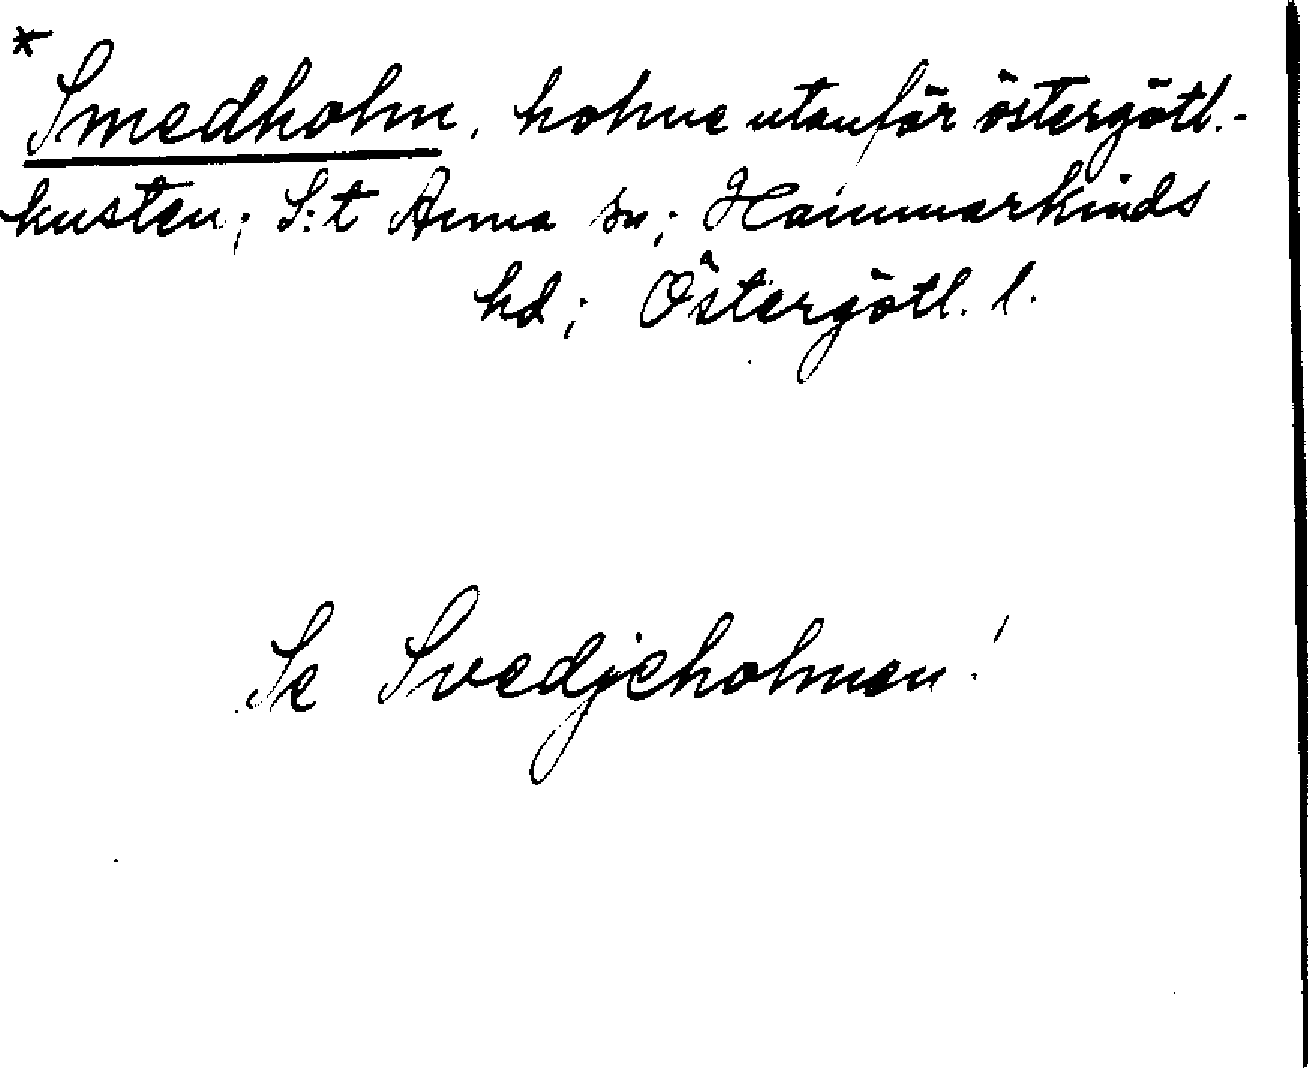 *
Smedholm, holme utanför östergötl.-
kusten; S:t Anna sn; Hammarkinds
hd; Östergötl. l.
Se Svedjeholmen!